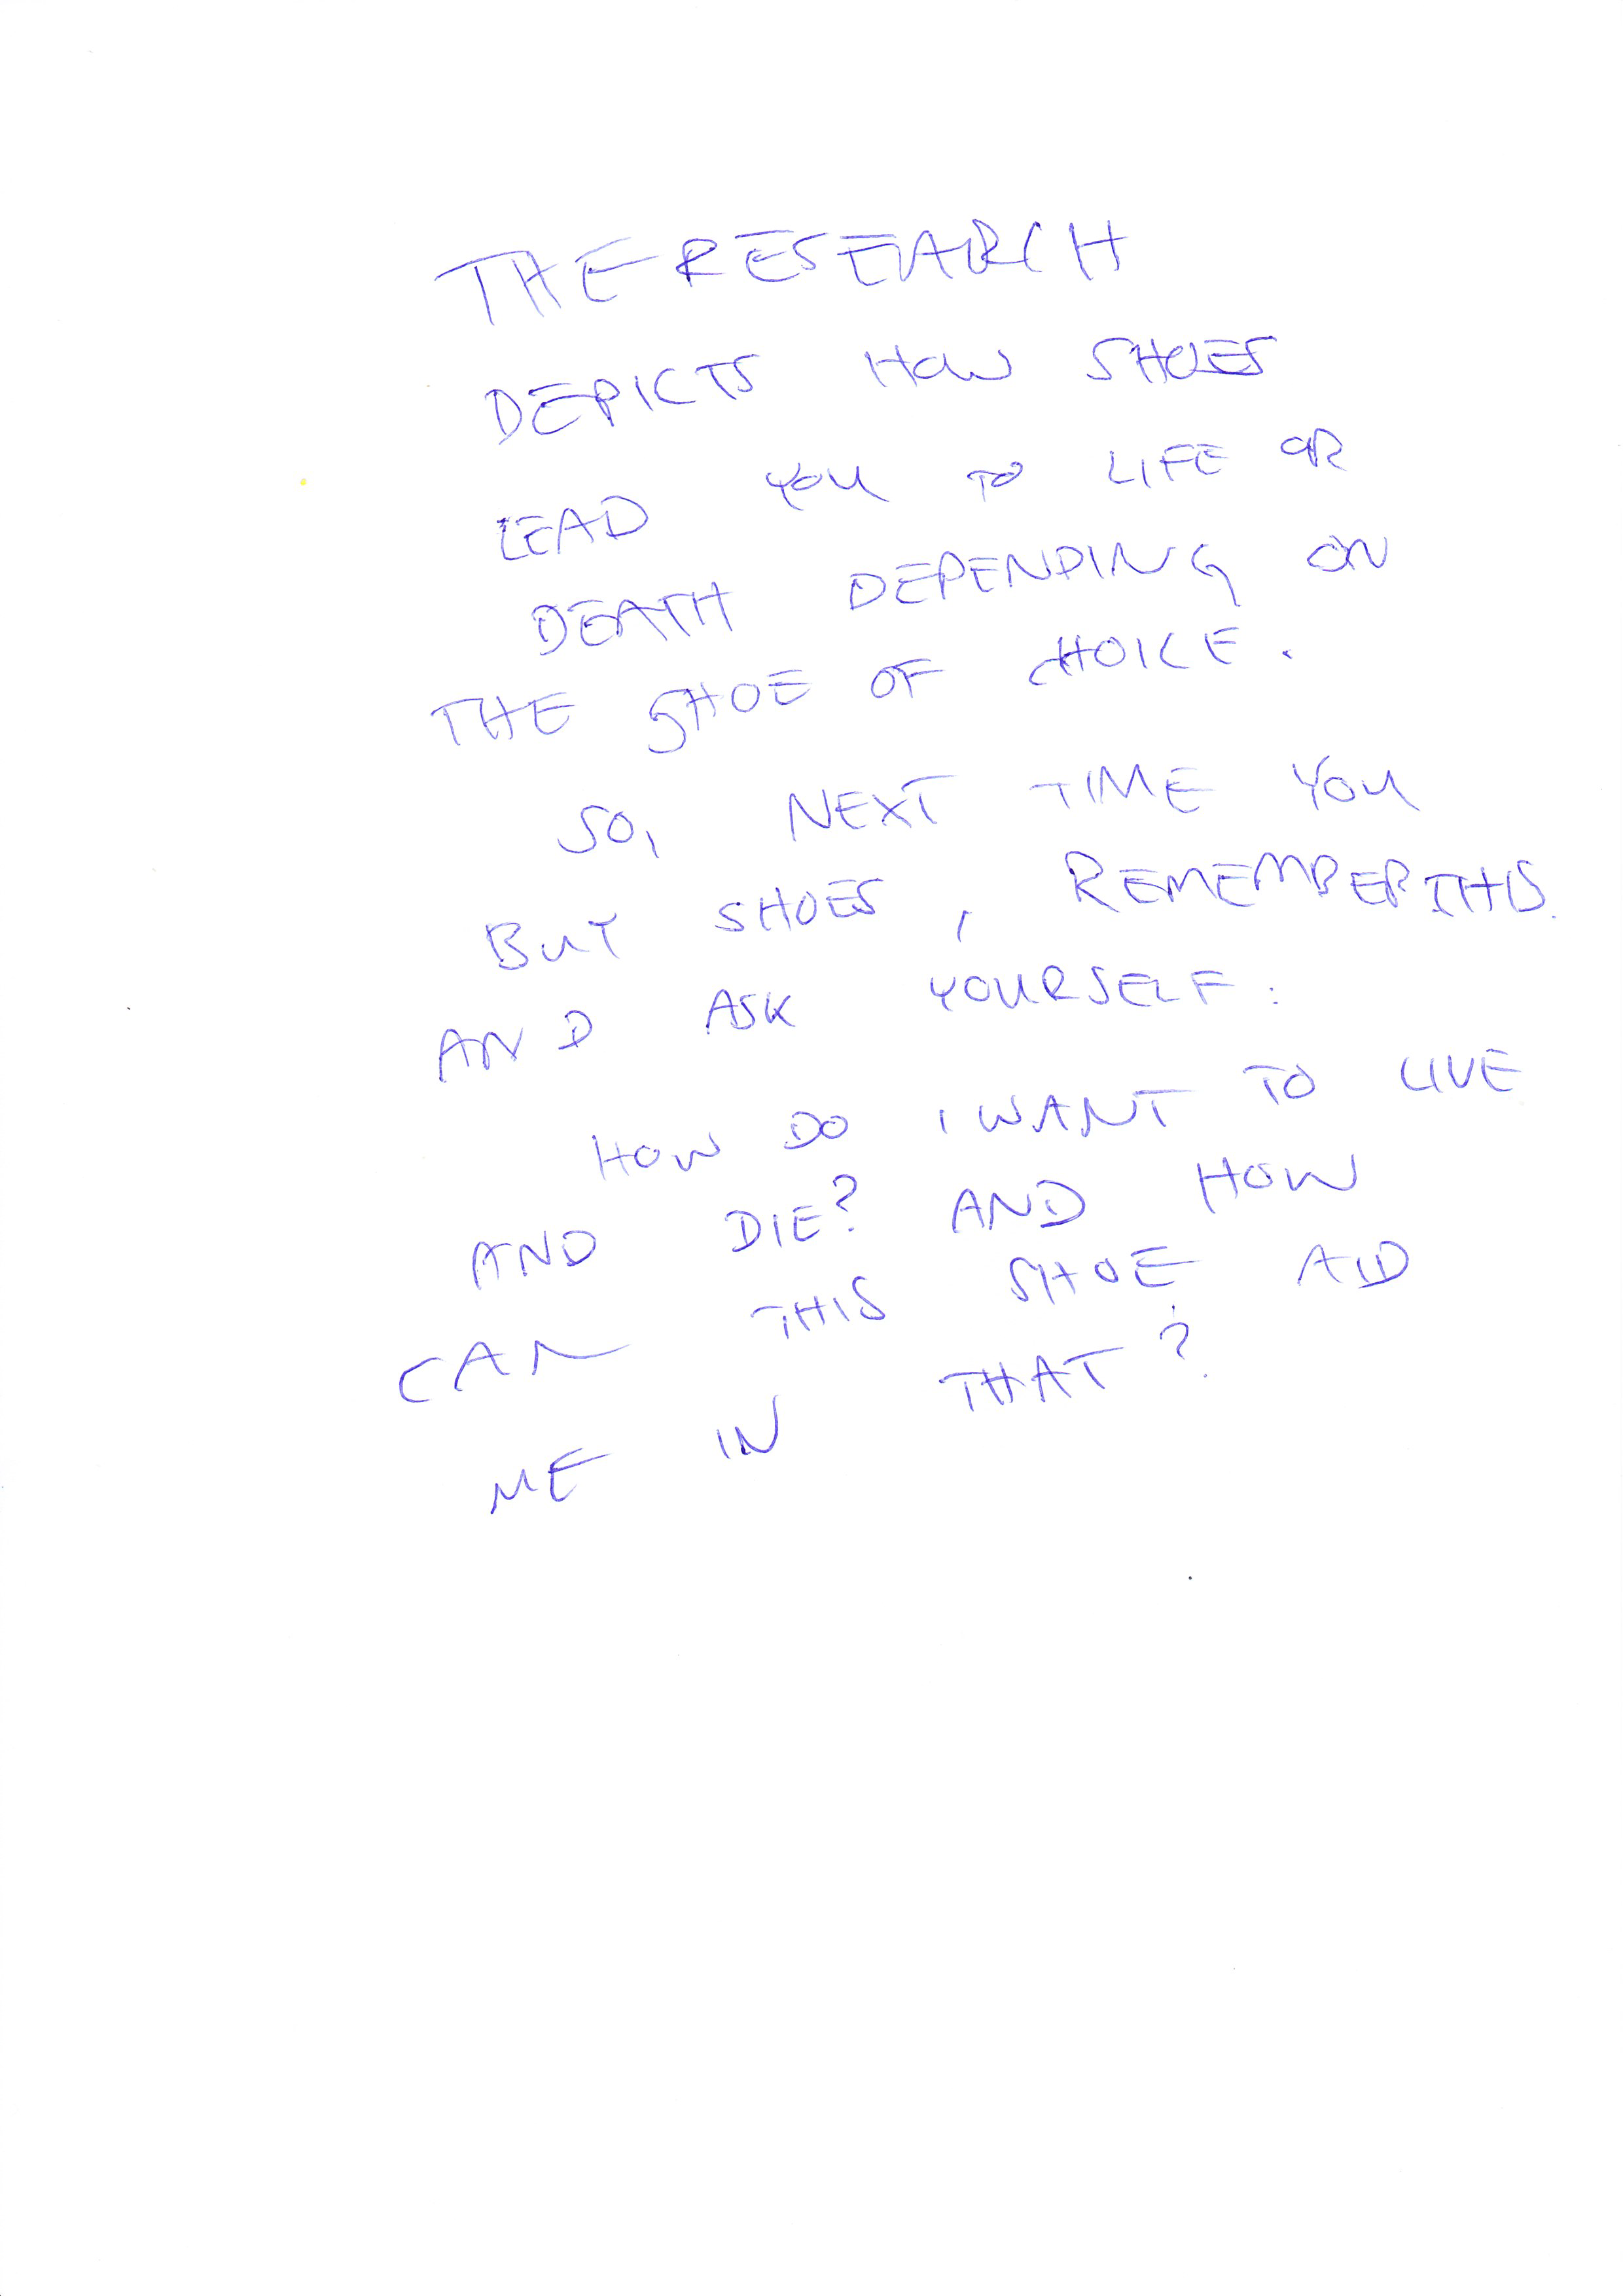 THE RESEARCH
DEPICTS HOW SHOES
LEAD YOU TO LIFE OR
DEATH DEPENDING ON
THE SHOE OF CHOICE.
SO, NEXT TIME YOU
BUY SHOES, REMEMBER THIS.
AND ASK YOURSELF:
HOW DO I WANT TO LIVE
AND DIE? AND HOW
CAN THIS SHOE AID
ME IN THAT?